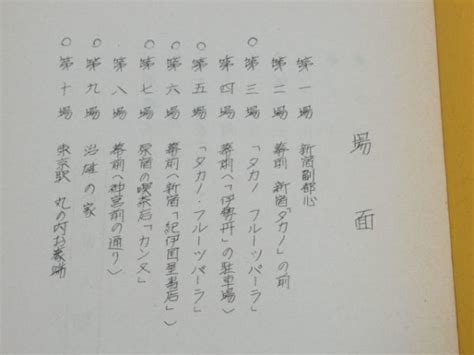 場面
第一場 新宿副都心
第二場 幕前 新宿「タカノ」の前
○第三場 「タカノ フルーツパーラ」
第四場 幕前へ「伊勢丹」の駐車場〉
○第五場 「タカノ・フルーツパーラ」
○第六場 幕前へ新宿「紀伊国屋書店」〉
○第七場 原宿の喫茶店「カンヌ」
第八場 幕前〈神宮前の通り〉
○第九場 治雄の家
○第十場 東京駅 丸の内お濠端